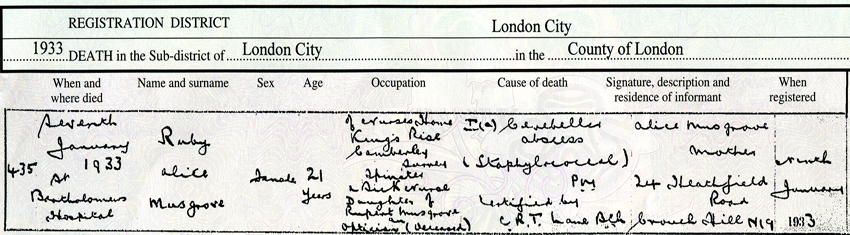 REGISTRATION DISTRICT London City
1933 DEATH in the Sub-district of London City in the County of London
When and where died
Name and surname
Sex
Age
Occupation
Cause of death
Signature, description and residence of informant
When registered
435
Seventh
January
1933
St
Bartholomews
Hospital
Ruby
Alice
Musgrove
Female
21
years
of Nurses Home
Kings Rise
Camberley
Surrey
Spinster
a Sick Nurse
Daughter of
Rupert Musgrove
an
Optician (deceased)
I(a) Cerebellar
abscess
(Staphylococcal)
PM
Certified by
C.R.T. Lane
Alice Musgrove
Mother
24 Heathfield
Road
Crouch Hill N19
Ninth
January
1933